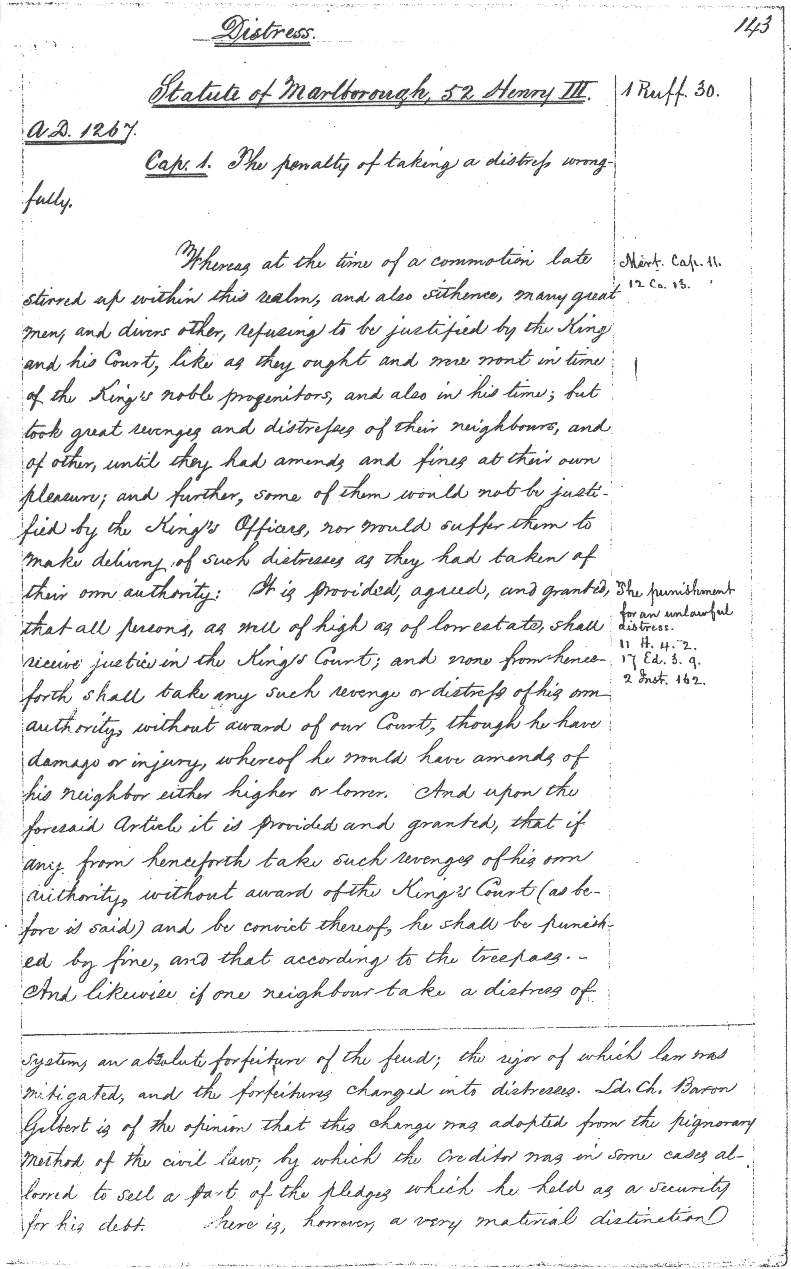 Distress.
143
Statute of Marlborough, 52 Henry III.
A.D. 1267.
1 Ruff. 30.
Cap. 1. The penalty of taking a distress wrong-
fully.
Whereas at the time of a commotion late
stirred up within this realm, and also sithence, many great
men, and divers other, refusing to be justified by the King
and his Court, like as they ought and were wont in time
of the King's noble progenitors, and also in his time; but
took great revenges and distresses of their neighbours, and
of other, until they had amends and fines at their own
pleasure; and further, some of them would not be justi-
fied by the King's Officers, nor would suffer them to
make delivery of such distresses as they had taken of
their own authority: It is provided, agreed, and granted,
that all persons, as well of high as of low estate, shall
receive justice in the King's Court; and none from hence-
forth shall take any such revenge or distress of his own
authority, without award of our Court, though he have
damage or injury, whereof he would have amends of
his neighbor either higher or lower. And upon the
foresaid Article it is provided and granted, that if
any from henceforth take such revenges of his own
authority, without award of the King's Court (as be-
fore is said) and be convict thereof, he shall be punish-
ed by fine, and that according to the trespass.-
And likewise if one neighbour take a distress of
Mirt. Cap. 11.
12 Co. 13.
The punishment
for an unlawful
distress.
11 H. 4. 2.
17 Ed. 3. 9.
2 Inst. 162.
system, an absolute forfeiture of the feud; the rigor of which law was
mitigated, and the forfeitures changed into distresses. Ld. Ch. Baron
Gilbert is of the opinion that this change was adopted from the pignorary
method of the civil law, by which the creditor was in some cases al-
lowed to sell a part of the pledges which he held as a security
for his debt. here is, however, a very material distinction